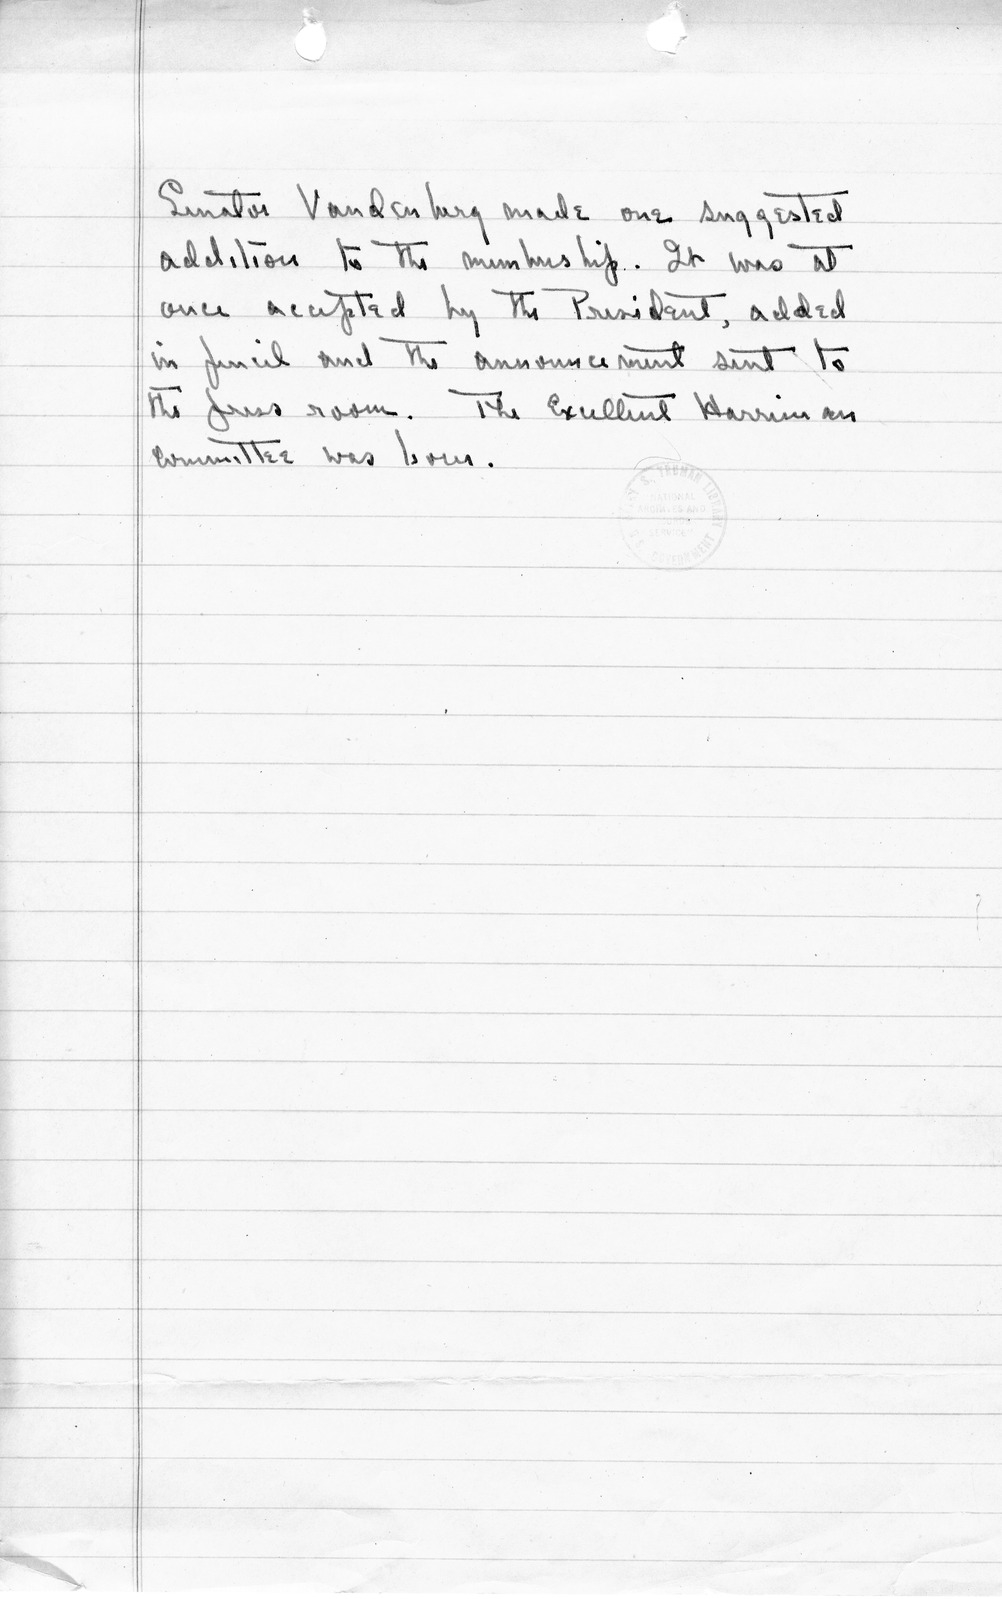 Senator Vandenburg made one suggested
addition to the membership. It was at
once accepted by the President, added
in pencil and the announcement sent to
the press room. The Excellent Harriman
committee was born.
HARRY S. TRUMAN LIBRARY
NATIONAL
ARCHIVES AND
SERVICE
U.S. GOVERNMENT